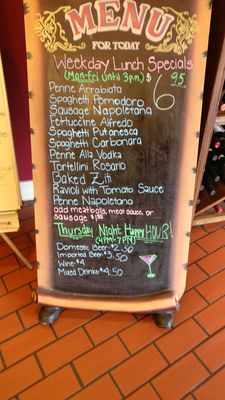 MENU
FOR TODAY
Weekday Lunch Specials
(Mon-Fri until 3pm) $6.95
Penne Arrabiata
Spaghetti Pomodoro
Sausage Napoletana
Fettuccine Alfredo
Spaghetti Putanesca
Spaghetti Carbonara
Penne Alla Vodka
Tortellini Rosario
Baked Ziti
Ravioli with Tomato Sauce
Penne Napoletana
add meatballs, meat sauce, or
sausage
Thursday Night Happy HOUR!
(4PM-7PM)
Domestic Beer-$2.50
Imported Beer-$3.50
Wine-$4
Mixed Drinks-$4.50